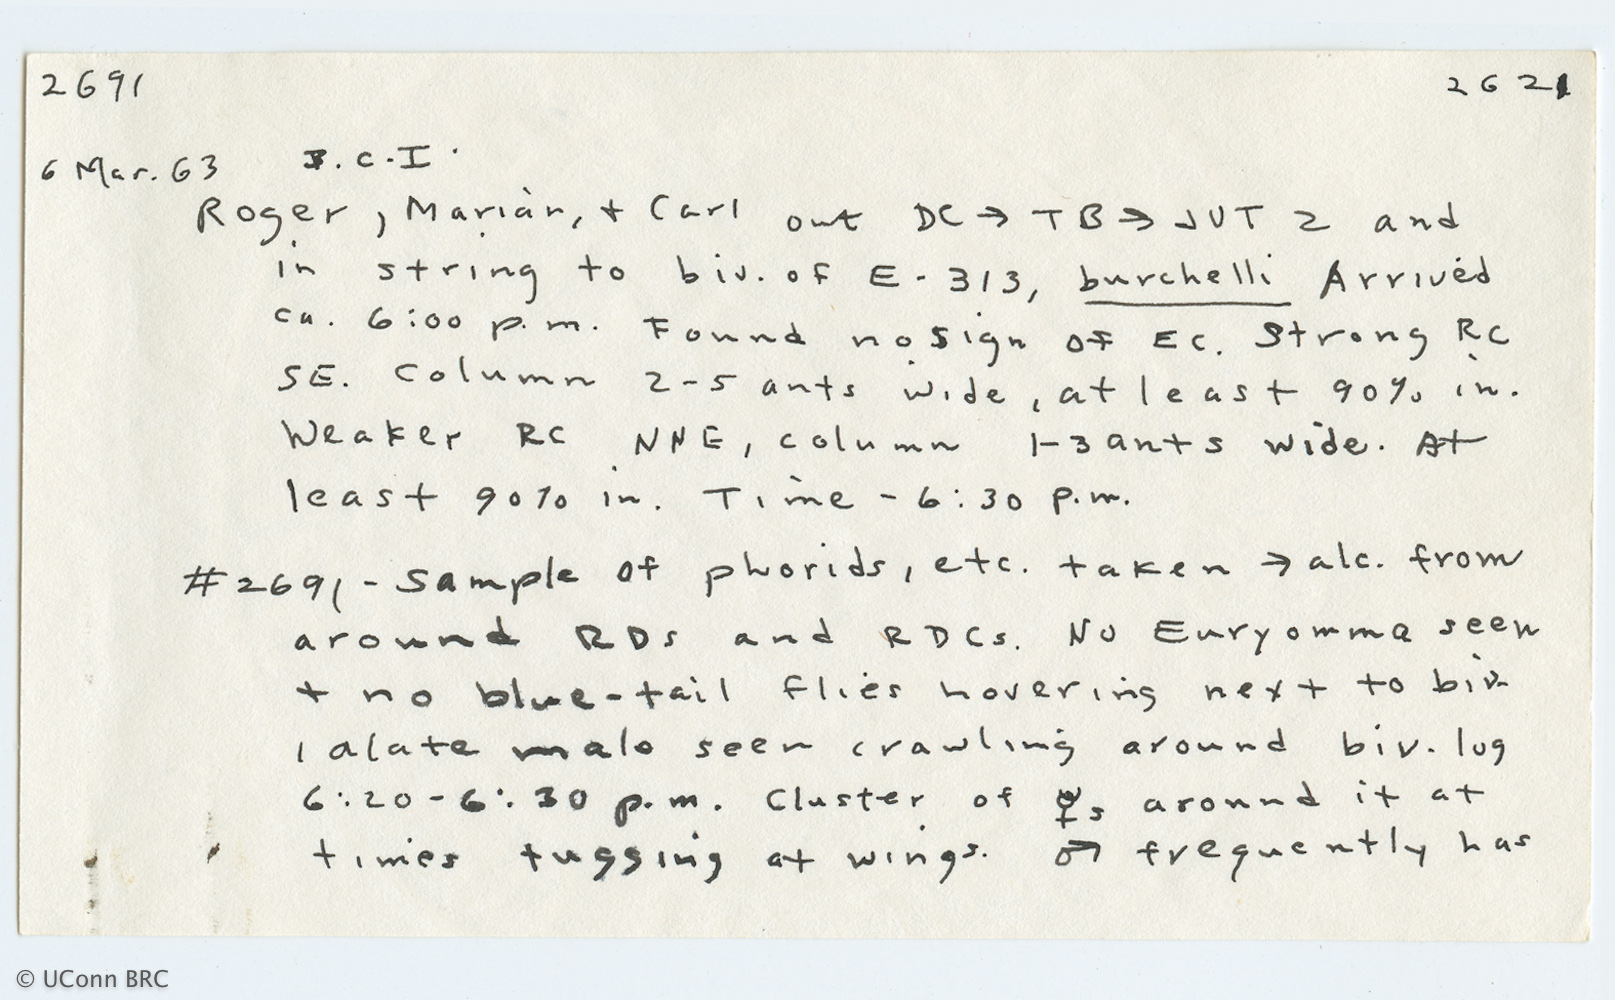 2691 2621
6 Mar. 63 B.C.I.
Roger, Marian, + Carl out DC → TB → JVT 2 and
in string to biv. of E-313, burchelli Arrived
ca. 6:00 p.m. Found no sign of EC. Strong RC
SE. Column 2-5 ants wide, at least 90% in.
Weaker RC NNE, column 1-3 ants wide. At
least 90% in. Time - 6:30 p.m.
#2691 - Sample of phorids, etc. taken → alc. from
around RDs and RDCs. No Euryomma seen
+ no blue-tail flies hovering next to biv.
1 alate male seen crawling around biv. log
6:20-6:30 p.m. Cluster of ☿s around it at
times tugging at wings. ♂ frequently has
© UConn BRC